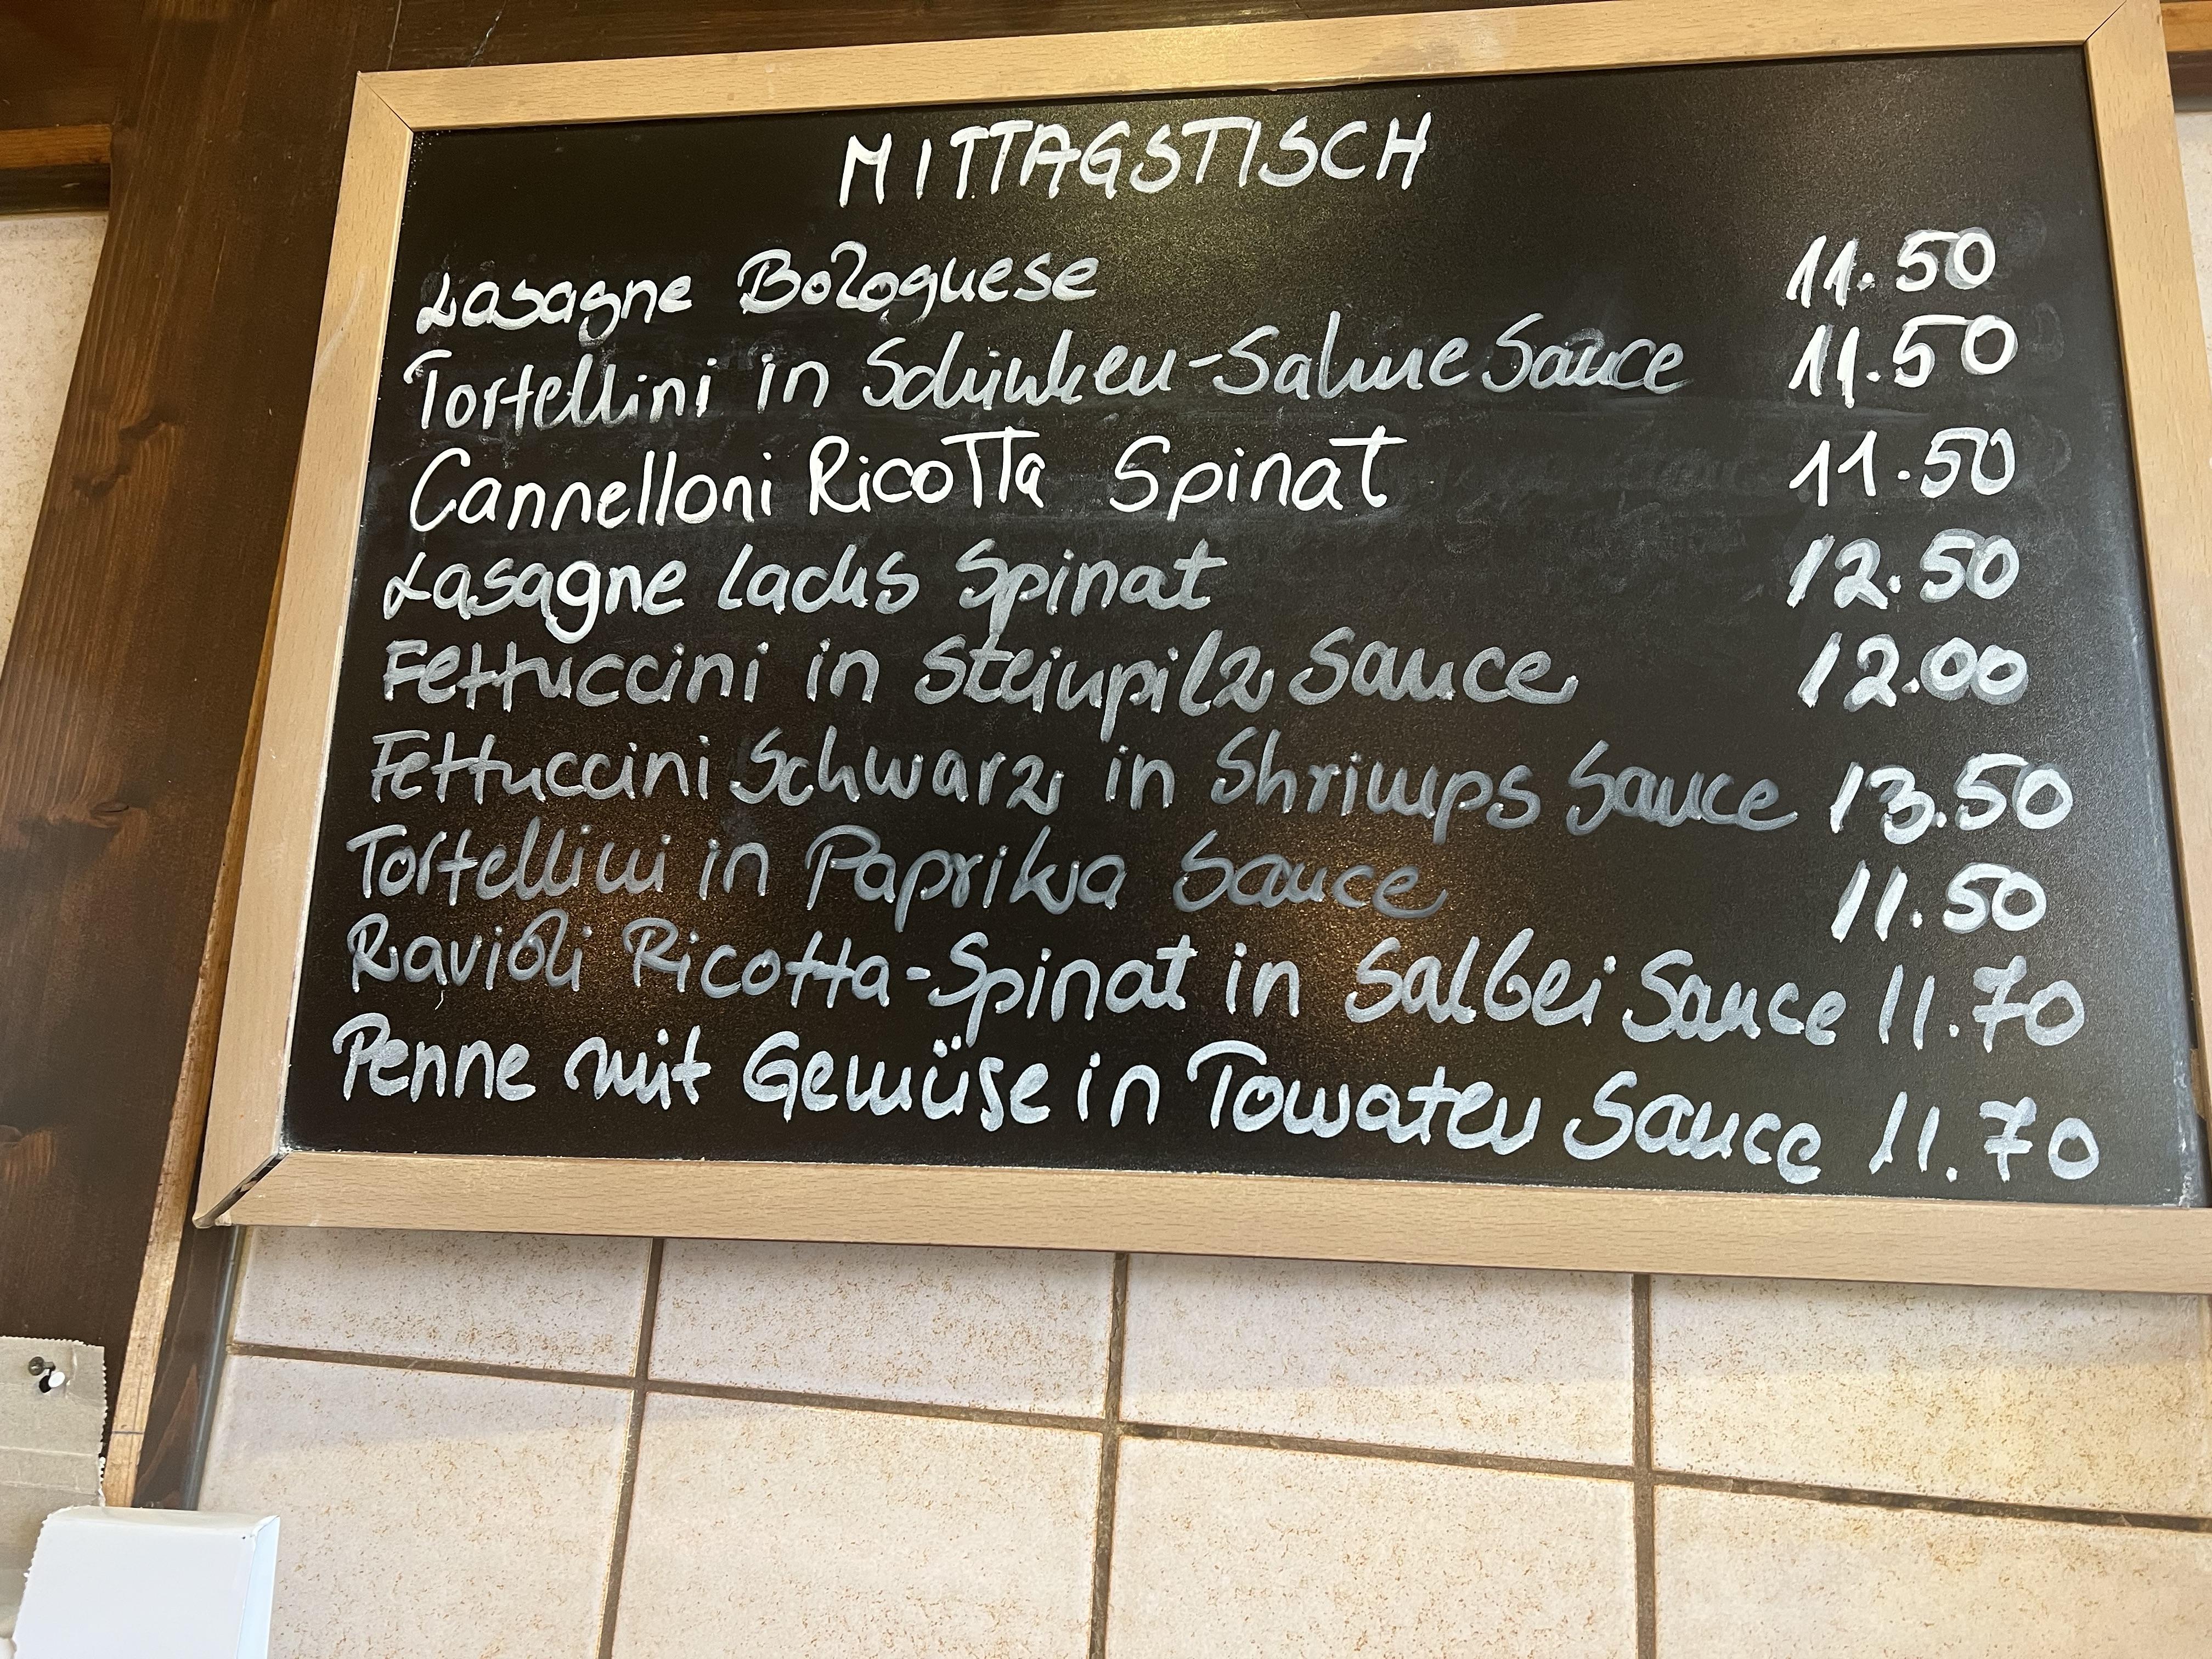 MITTAGSTISCH
Lasagne Bolognese 11.50
Tortellini in Schinken-Sahne Sauce 11.50
Cannelloni Ricotta Spinat 11.50
Lasagne Lachs Spinat 12.50
Fettuccini in Steinpilz Sauce 12.00
Fettuccini Schwarz in Shrimps Sauce 13.50
Tortellini in Paprika Sauce 11.50
Ravioli Ricotta-Spinat in Salbei Sauce 11.70
Penne mit Gemüse in Tomaten Sauce 11.70